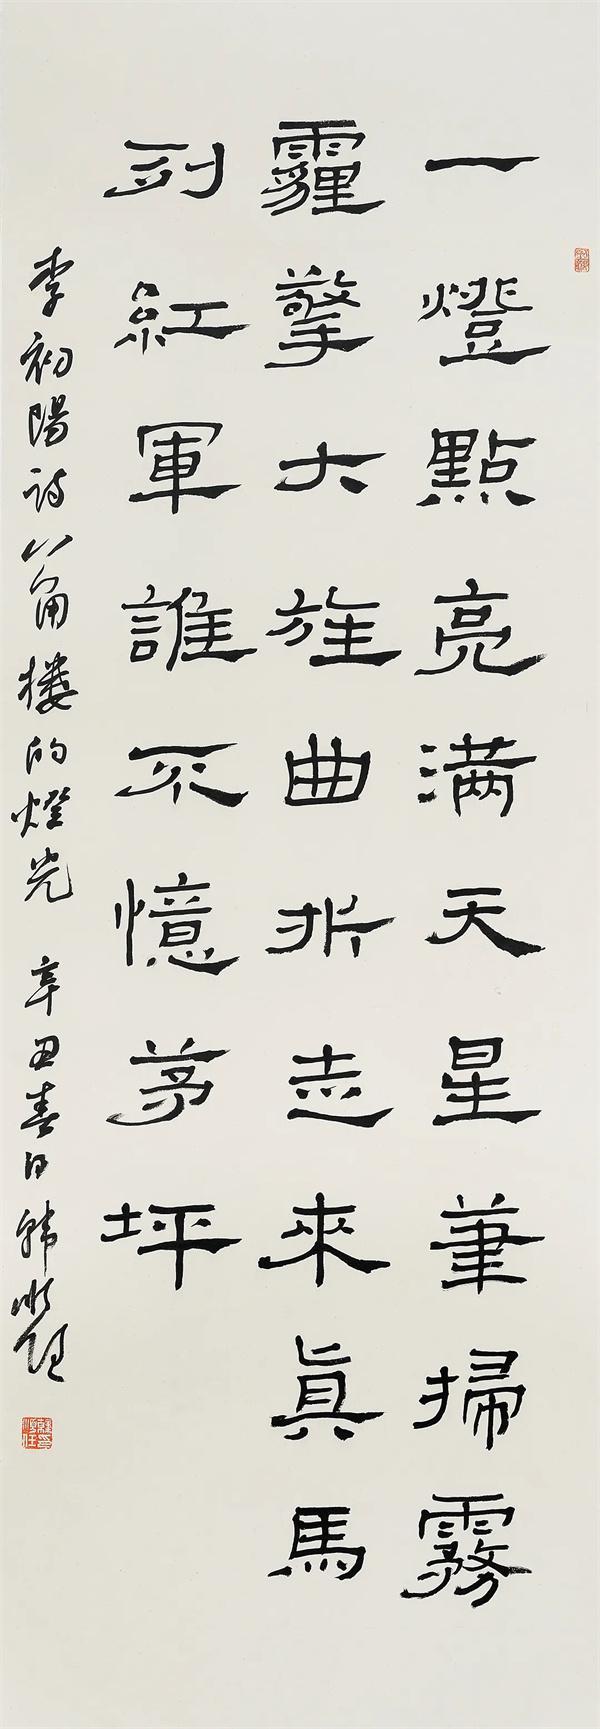 一燈點亮满天星筆掃霧
霾擎大旌曲折志來眞馬
列紅軍誰不憶茅坪
李初陽詩八角楼的燈光 辛丑春日韓順任